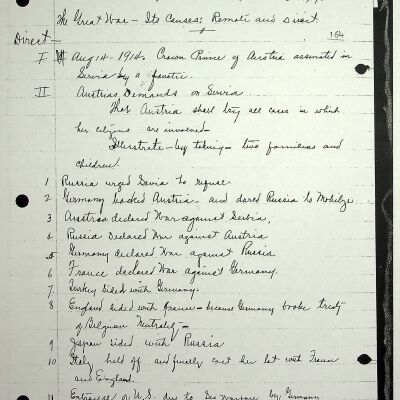 The Great War – Its Causes: Remote and Direct
164
Direct –
I Aug 14 - 1914. Crown Prince of Austria assinated in
Servia by a fanatic.
II Austrias Demands on Servia.
That Austria shall try all cases in which
her citizens are involved –
Illustrate – by taking – two families and
children.
1 Russia urged Sevia to refuse.
2 Germany backed Austria – and dared Russia to Mobilize
3 Austria declared War against Serbia.
4 Russia Declared War against Austria
5 Germany declared War against Russia
6 France declared War against Germany.
7. Turkey sided with Germany.
8 England sided with France – because Germany broke treaty
of Belgian Neutrality –
9 Japan sided with Russia
10 Italy held off and finally cast her lot with France
and England.
11 Entrance of U.S. due to Sea warfare by Germany.